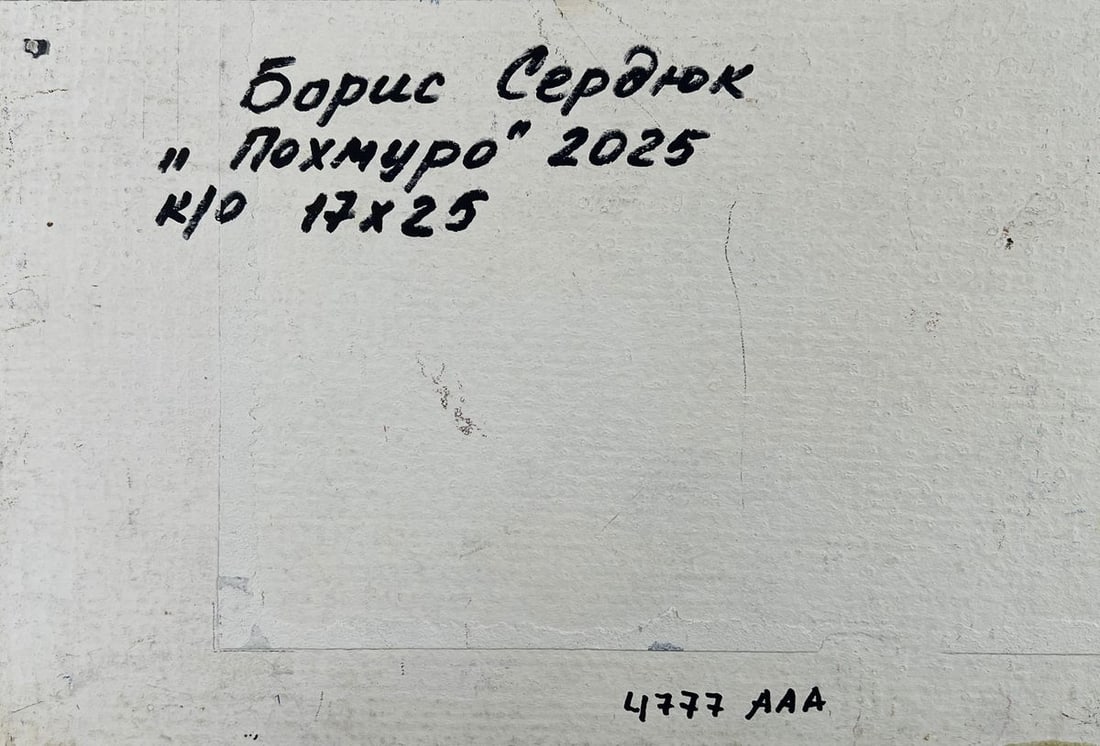 Борис Сердюк
„ Похмуро" 2025
к/о 17х25
4777 ААА